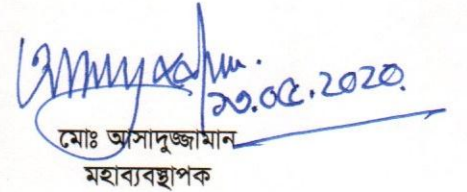 ২০.০৫.2020
মোঃ আসাদুজ্জামান
মহাব্যবস্থাপক